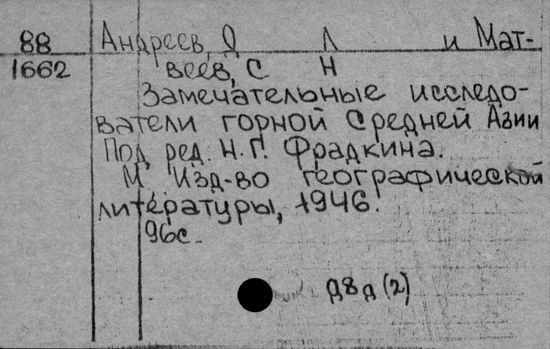 88 Андреев, Д Л и Мат-
1662 веев, С Н
Замечательные исследо-
ватели горной Средней Азии
Под ред. Н. Г. Фрадкина.
М, Изд-во географической
литературы, 1946.
96с.
д8д (2)